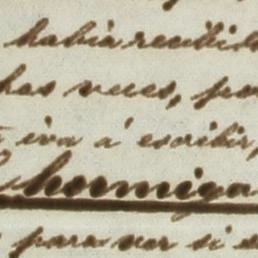 habia recibido
has veces, po
iva á escribir,
hormiga
para ver si e